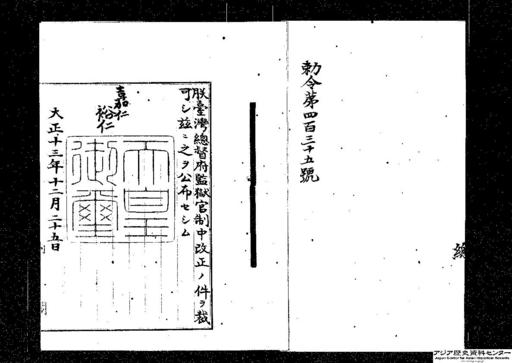 勅令第四百三十五號
朕臺灣總督府監獄官制中改正ノ件ヲ裁
可シ茲ニ之ヲ公布セシム
嘉仁
裕仁
天皇
御璽
大正十三年十二月二十五日
アジア歴史資料センター
Japan Center for Asian Historical Records